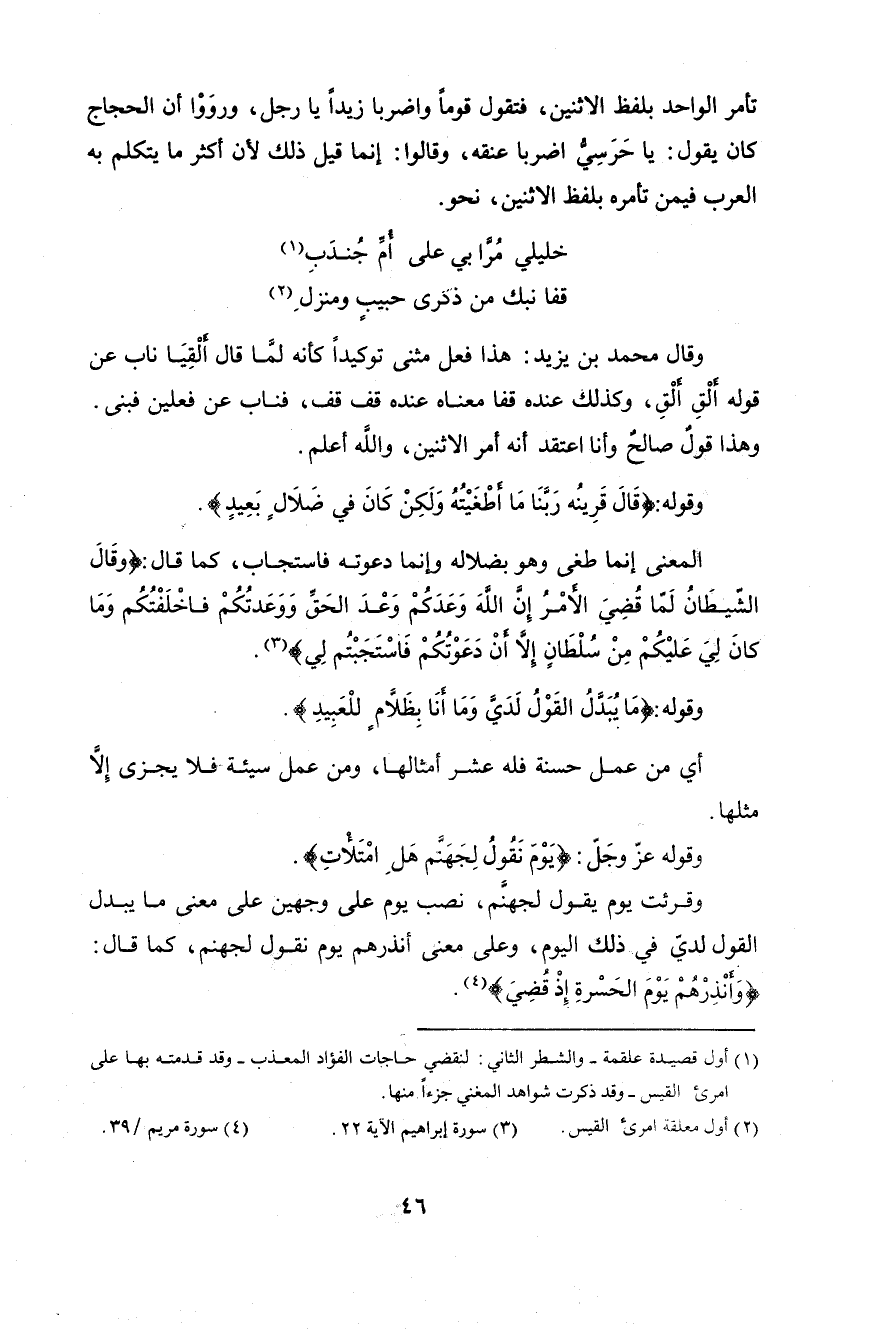 تأمر الواحد بلفظ الاثنين، فتقول قوماً واضربا زيداً يا رجل، وروَوْا أن الحجاج
كان يقول: يا حَرَسِيُّ اضربا عنقه، وقالوا: إنما قيل ذلك لأن أكثر ما يتكلم به
العرب فيمن تأمره بلفظ الاثنين، نحو.
خليلي مُرَّا بي على أُمِّ جُنـدَبِ(١)
قفا نبك من ذكرى حبيبٍ ومنزلِ(٢)
وقال محمد بن يزيد: هذا فعل مثنى توكيداً كأنه لمَّـا قال أَلْقِيَـا ناب عن
قوله أَلْقِ أَلْقِ، وكذلك عنده قفا معنـاه عنده قف قف، فنـاب عن فعلين فبنى.
وهذا قولٌ صالحٌ وأنا اعتقد أنه أمر الاثنين، واللَّه أعلم.
وقوله:﴿قَالَ قَرِينُه رَبَّنَا مَا أَطْغَيْتُهُ وَلَكِنْ كَانَ في ضَلَالٍ بَعِيدٍ﴾.
المعنى إنما طغى وهو بضلاله وإنما دعوتـه فاستجـاب، كما قـال:﴿وقَالَ
الشّيـطَانُ لَمّا قُضِيَ الأَمْـرُ إِنَّ اللَّهَ وَعَدَكُمْ وَعْـدَ الحَقِّ وَوَعَدتُكُمْ فـاخْلَفْتُكُم وَمَا
كانَ لِيَ عَلَيْكُمْ مِنْ سُلْطَانٍ إلاَّ أنْ دَعَوْتُكُمْ فَاسْتَجَبْتُم لِي﴾(٣).
وقوله:﴿مَا يُبَدَّلُ القَوْلُ لَدَيَّ وَمَا أَنَا بِظَلَّامٍ للْعَبِيدِ﴾.
أي من عمـل حسنة فله عشـر أمثالهـا، ومن عمل سيئـة فـلا يجـزى إلاَّ
مثلها.
وقوله عزّ وجَلّ: ﴿يَوْمَ نَقُولُ لِجَهَنَّم هَلِ امْتَلَأْتِ﴾.
وقـرئت يوم يقـول لجهنَّم، نصب يوم على وجهين على معنى مـا يبـدل
القول لديّ في ذلك اليوم، وعلى معنى أنذرهم يوم نقـول لجهنم، كما قـال:
﴿وَأَنْذِرْهُمْ يَوْمَ الحَسْرةِ إِذْ قُضِيَ﴾(٤).
(١) أول قصيـدة علقمة ـ والشـطر الثاني: لنقضي حـاجات الفؤاد المعـذب ـ وقد قـدمتـه بهـا على
امرئ القيس ـ وقد ذكرت شواهد المغني جزءاً منها.
(٢) أول معلقة امرئ القيس. (٣) سورة إبراهيم الآية ٢٢. (٤) سورة مريم /٣٩.
٤٦